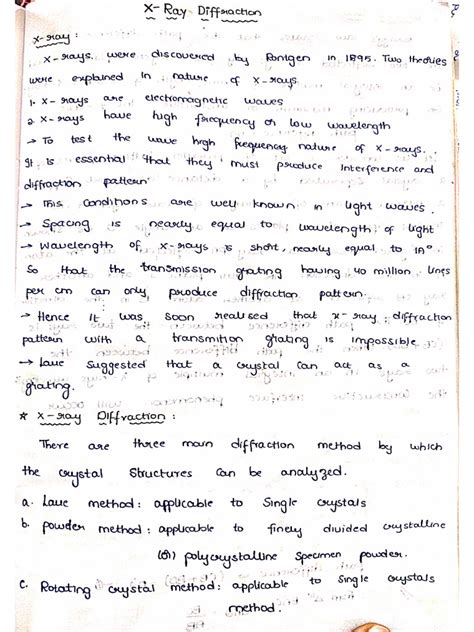 X-Ray Diffraction
X-ray :
X-rays were discovered by Rontgen in 1895. Two theories
were explained in nature of X-rays
1. X-rays are electromagnetic waves
2. X-rays have high frequency or low wavelength
→ To test the wave high frequency nature of X-rays.
It is essential that they must produce interference and
diffraction pattern
→ This conditions are well known in light waves.
→ Spacing is nearly equal to wavelength of light
→ Wavelength of X-rays is short, nearly equal to 1A°
So that the transmission grating having 40 million lines
per cm can only produce diffraction pattern.
→ Hence it was soon realised that x-ray diffraction
pattern with a transmition grating is impossible
→ Laue suggested that a crystal can act as a
grating.
* X-ray Diffraction :
There are three main diffraction method by which
the crystal structures can be analyzed.
a. Laue method: applicable to single crystals
b. powder method: applicable to finely divided crystalline
(or) polycrystalline specimen powder.
c. Rotating crystal method: applicable to single crystals
method.